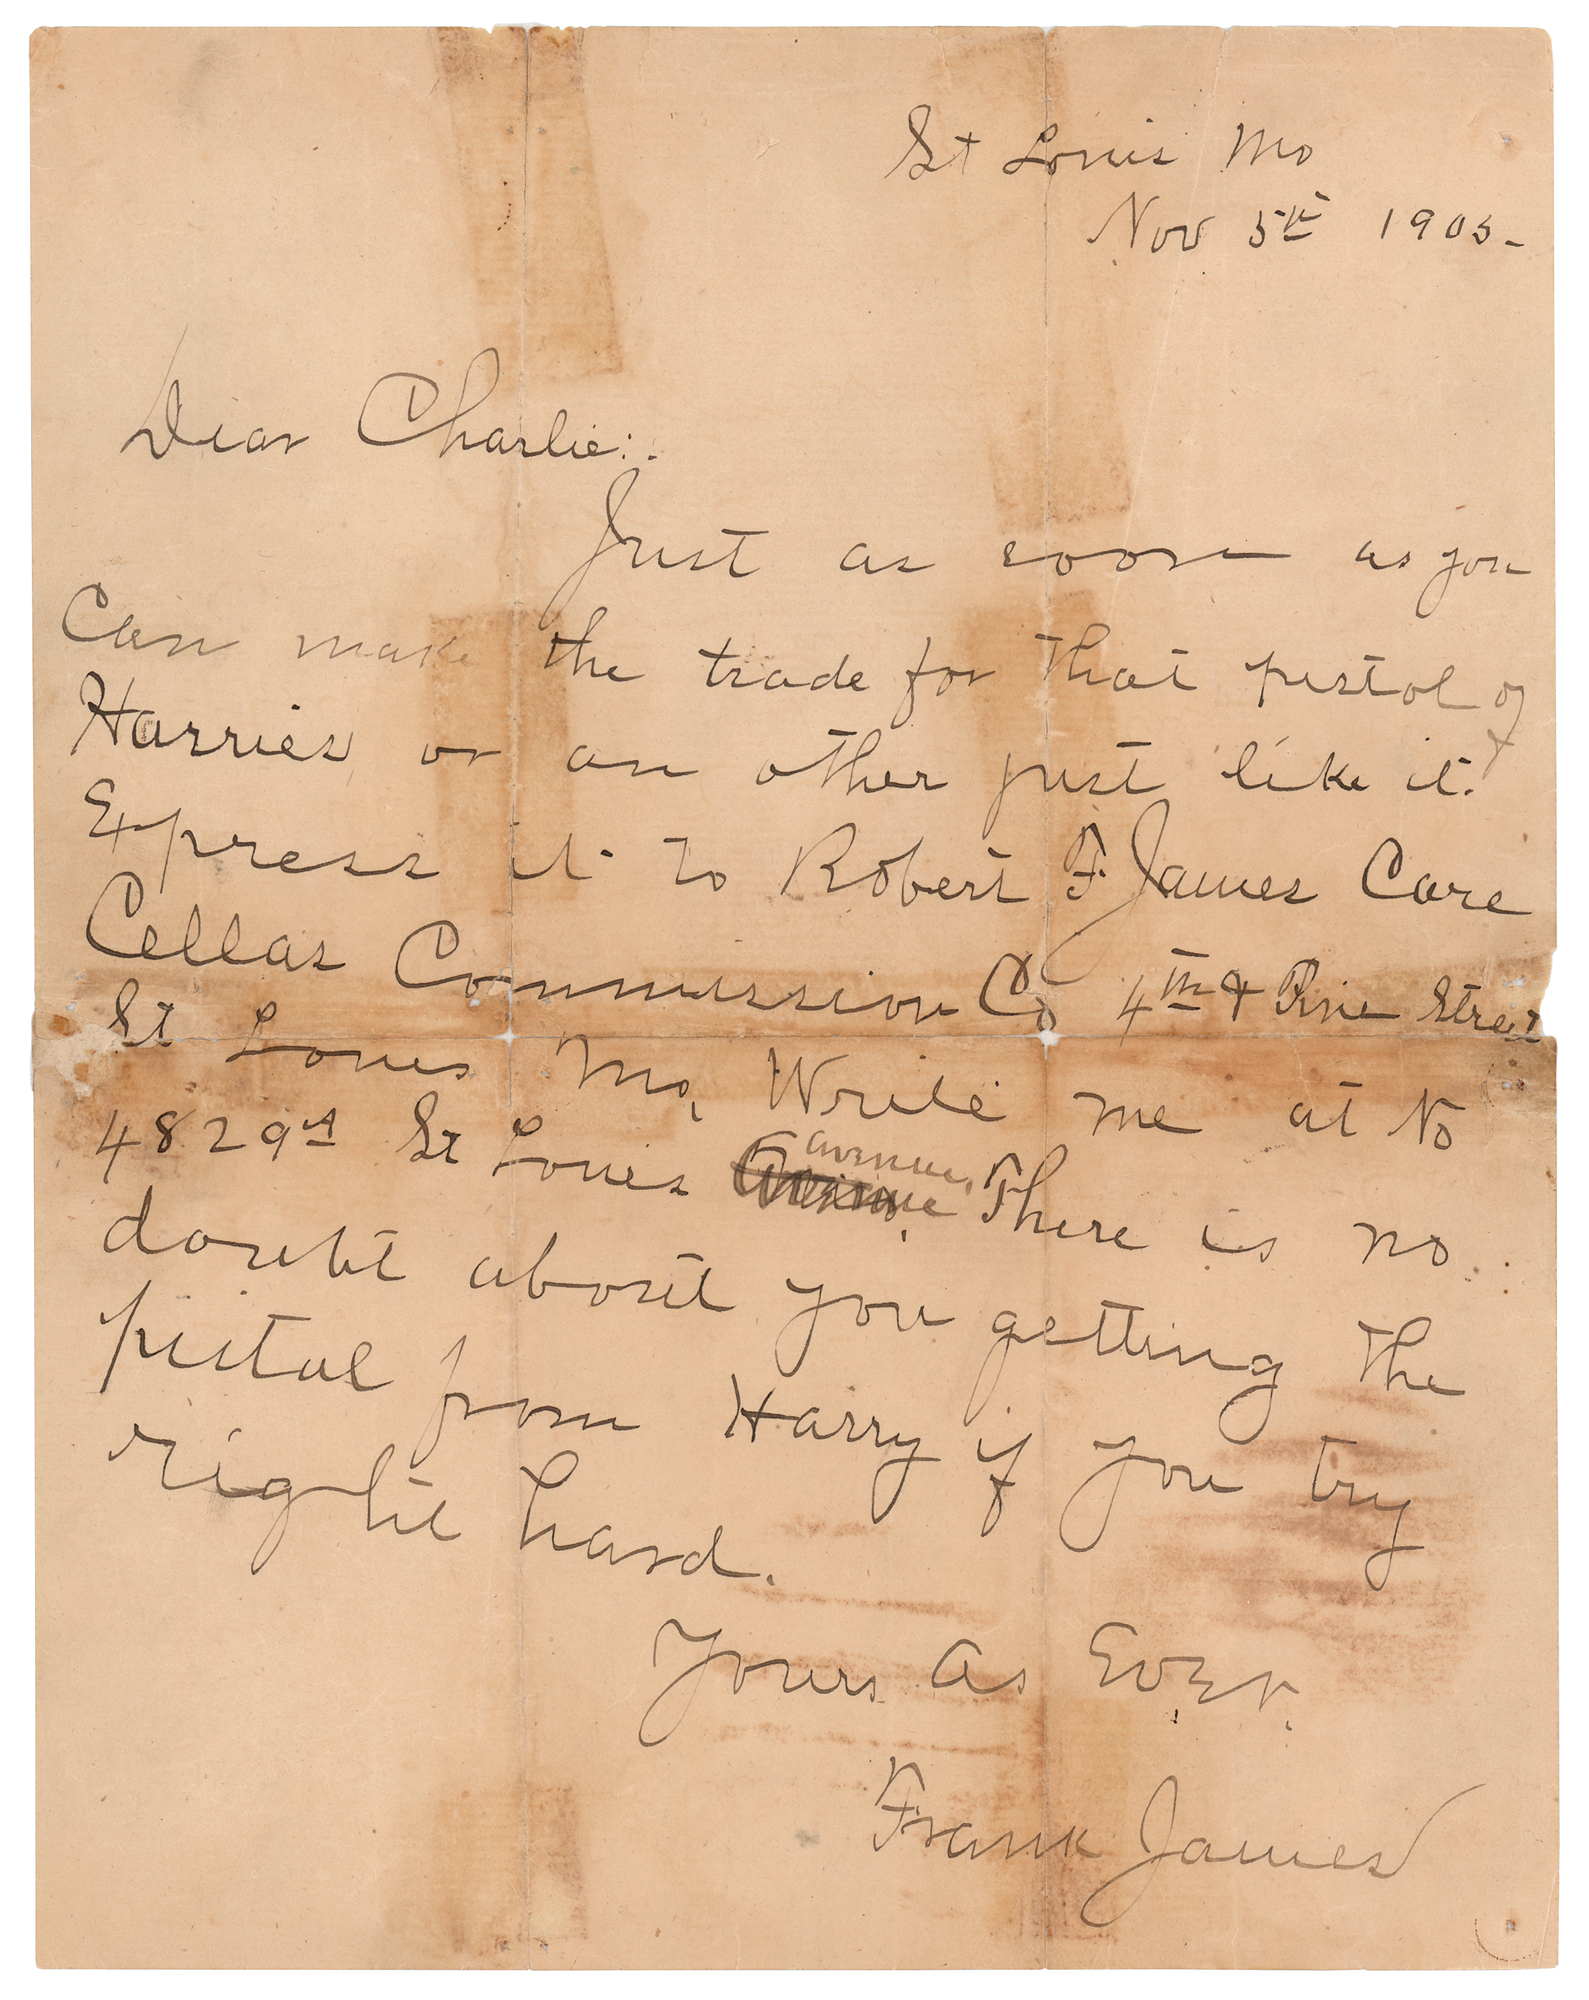 St Louis Mo
Nov 5th 1905-
Dear Charlie:.
Just as soon as you
Can make the trade for that pistol of
Harries or an other just like it.
Express it to Robert F. James Care
Cellas Commission Co 4th & Pine Street
St Louis Mo, Write me at No
4829A St Louis avenue, There is no
doubt about you getting the
pistol from Harry if you try
right hard.
Yours As Ever.
Frank James